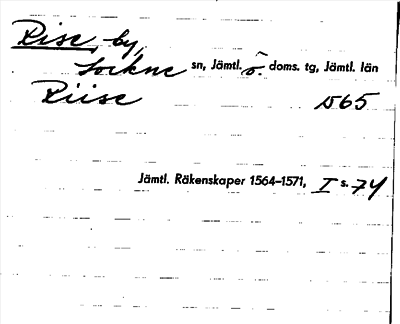 Rise, by,
Lockne sn, Jämtl. ö. doms. tg, Jämtl. län
Riise 1565
Jämtl. Räkenskaper 1564–1571, I s. 74